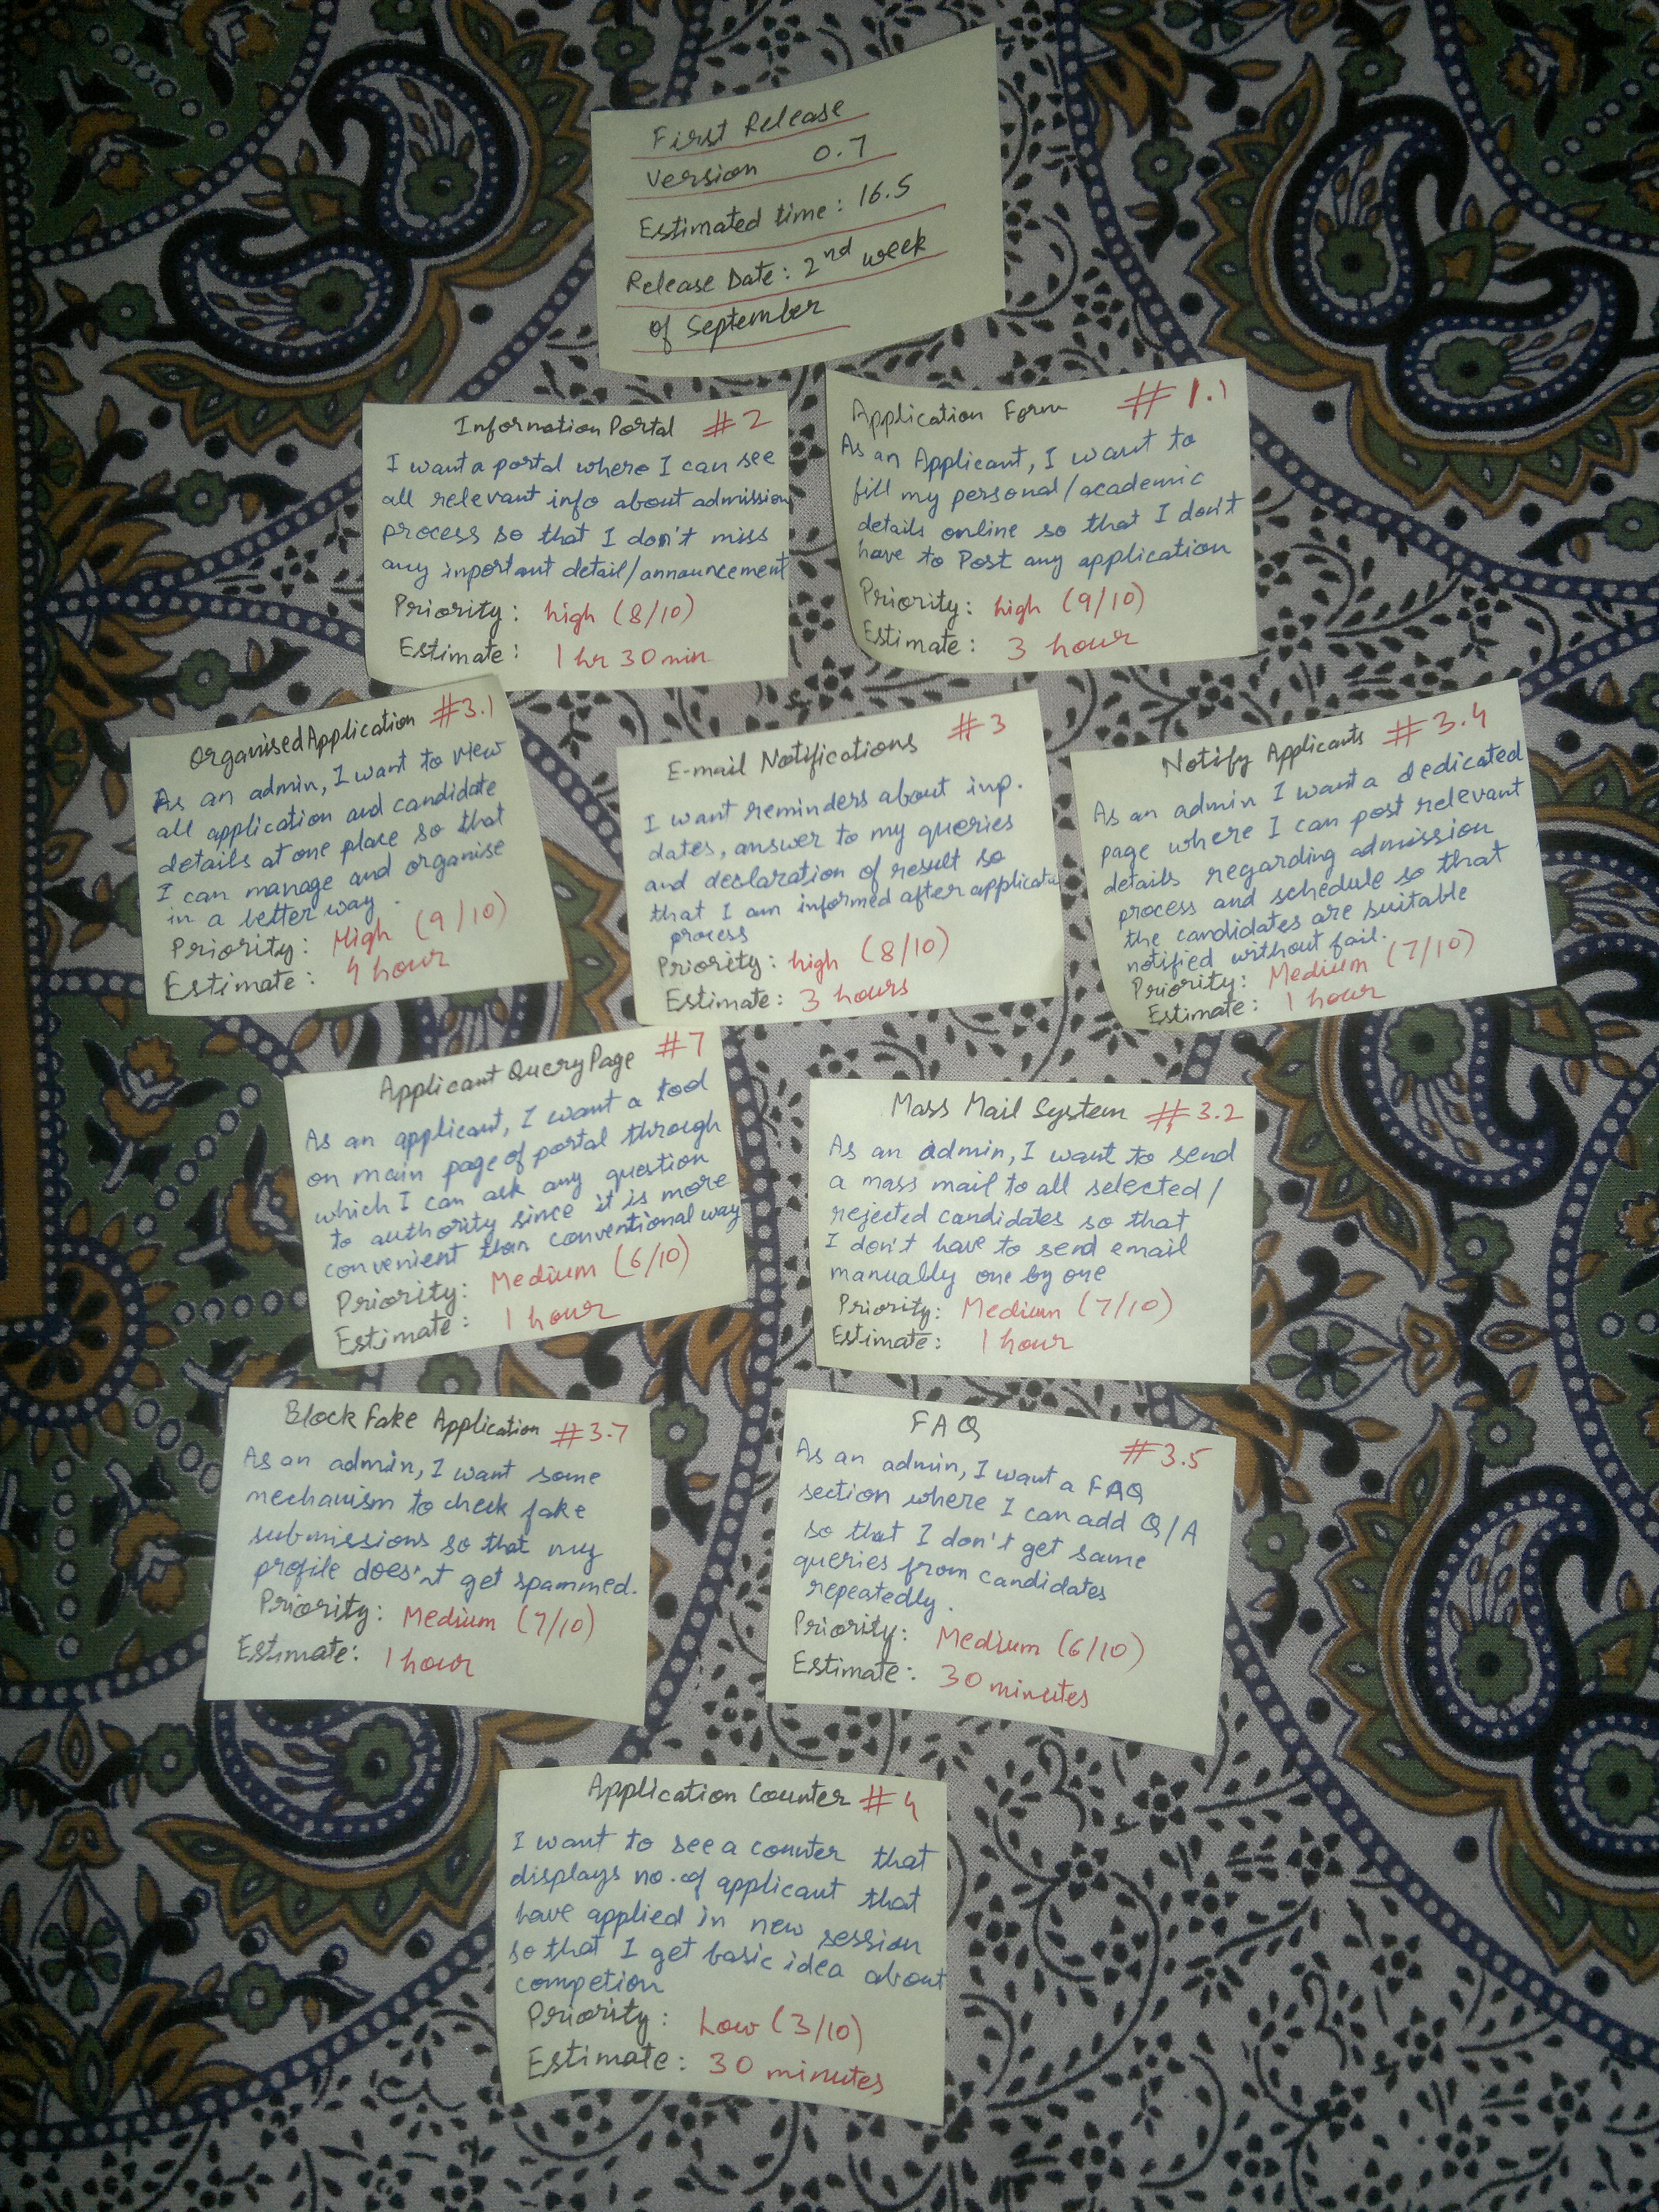 First Release
version 0.7
Estimated time: 16.5
Release Date: 2nd week
of September
Information Portal #2
I want a portal where I can see
all relevant info about admission
process so that I don't miss
any inportant detail/announcement
Priority: high (8/10)
Estimate: 1 hr 30 min
Application Form #1.1
As an Applicant, I want to
fill my personal/academic
details online so that I don't
have to Post any application
Priority: high (9/10)
Estimate: 3 hour
Organised Application #3.1
As an admin, I want to view
all application and candidate
details at one place so that
I can manage and organise
in a better way.
Priority: High (9/10)
Estimate: 4 hour
E-mail Notifications #3
I want reminders about imp.
dates, answer to my queries
and declaration of result so
that I am informed after applicatio
process
Priority: high (8/10)
Estimate: 3 hours
Notify Applicants #3.4
As an admin I want a dedicated
page where I can post relevant
details regarding admission
process and schedule so that
the candidates are suitable
notified without fail.
Priority: Medium (7/10)
Estimate: 1 hour
Applicant Query Page #7
As an applicant, I want a tool
on main page of portal through
which I can ask any question
to authority since it is more
convenient than conventional way
Priority: Medium (6/10)
Estimate: 1 hour
Mass Mail System #3.2
As an admin, I want to send
a mass mail to all selected/
rejected candidates so that
I don't have to send email
manually one by one
Priority: Medium (7/10)
Estimate: 1 hour
Block Fake Application #3.7
As an admin, I want some
mechanism to check fake
submissions so that my
profile does'nt get spammed.
Priority: Medium (7/10)
Estimate: 1 hour
FAQ #3.5
As an admin, I want a FAQ
section where I can add Q/A
so that I don't get same
queries from candidates
repeatedly.
Priority: Medium (6/10)
Estimate: 30 minutes
Application Counter #4
I want to see a counter that
displays no. of applicant that
have applied in new session
so that I get basic idea about
competion
Priority: Low (3/10)
Estimate: 30 minutes